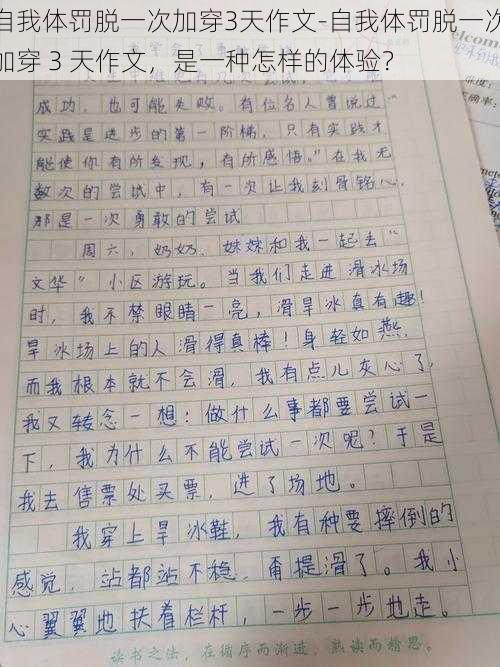 自我体罚脱一次加穿3天作文-自我体罚脱一次
加穿 3 天作文，是一种怎样的体验？
成功，也可能失败。有位名人曾说过“
实践是进步的第一阶梯，只有实践才
能使你有所发现，有所感悟。”在我无
数次的尝试中，有一次让我刻骨铭心，
那是一次勇敢的尝试
周六，奶奶、妹妹和我一起去“
文华”小区游玩。当我们走进滑冰场
时，我不禁眼睛一亮，滑旱冰真有趣！
旱冰场上的人滑得真棒！身轻如燕，
而我根本就不会滑，我有点儿灰心了，
我又转念一想：做什么事都要尝试一
下，我为什么不能尝试一次呢？于是
我去售票处买票，进了场地。
我穿上旱冰鞋，我有种要摔倒的
感觉，站都站不稳，甭提滑了。我小
心翼翼地扶着栏杆，一步一步地走。
读书之法，在循序而渐进，熟读而精思。